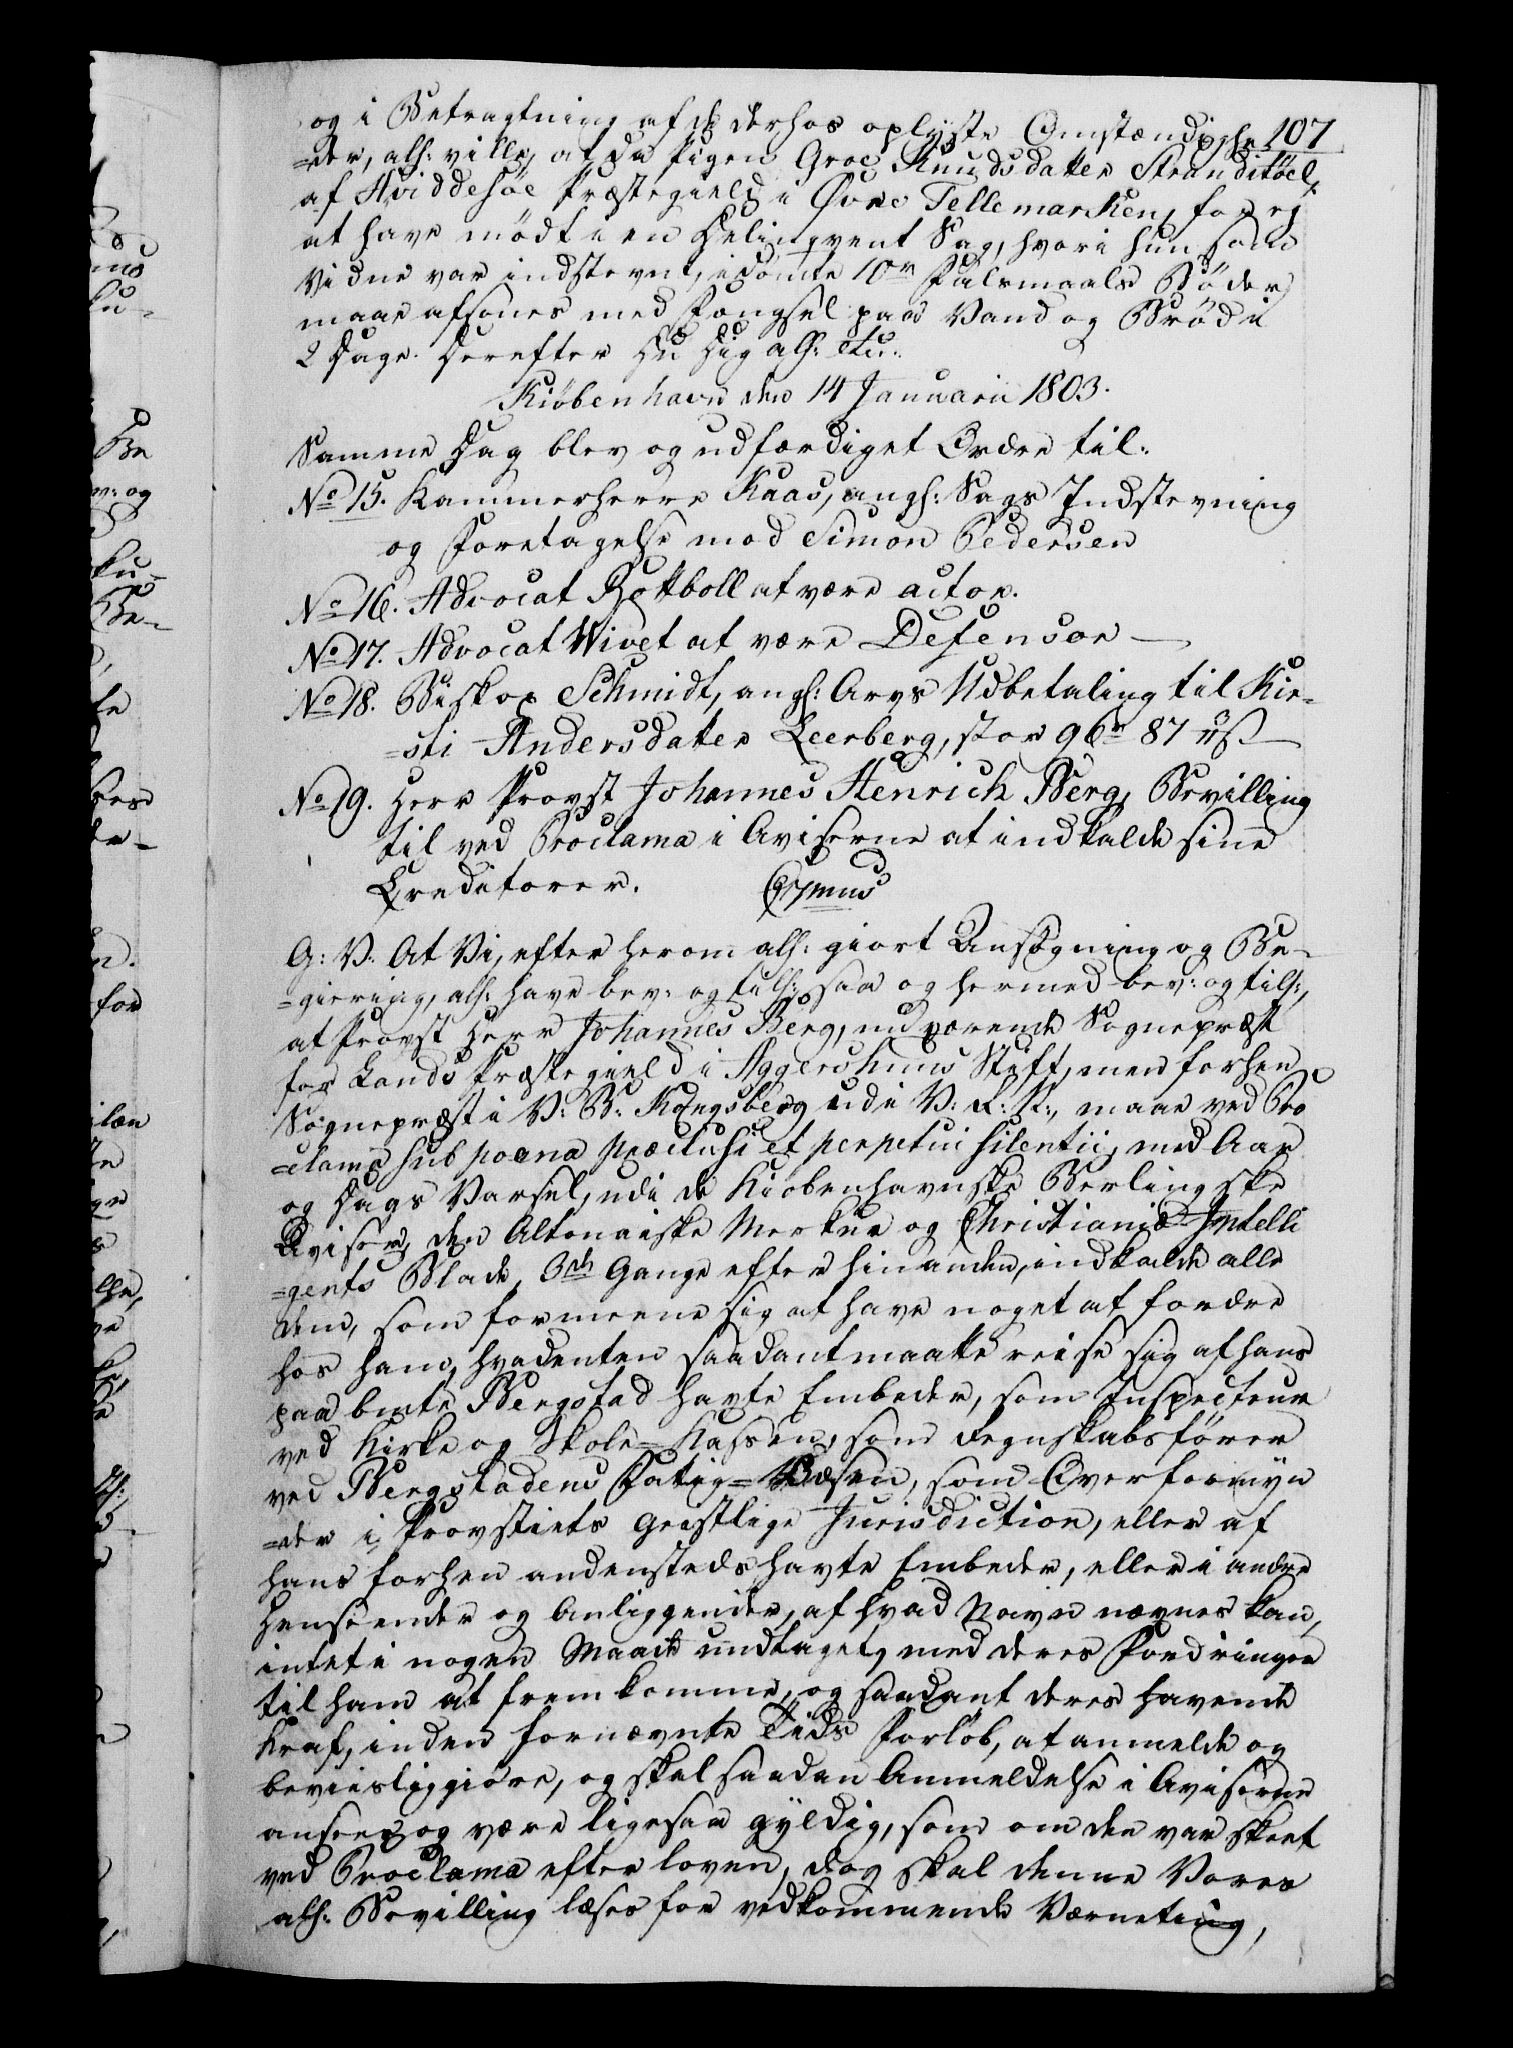 107
og i Betragtning af de derhos oplyste Omstændighe
=der, alh: ville, at da Pigen Groe Knudsdatter Stranditöel,
af Hviddesöe Præstegield i Øvre Tellemarken, for ej
at have mödt i en Delinqvent Sag, hvori hun som
Vidne var indstevnt, idömte 10 rd Falsmaals Böder,
maae afsones med Fængsel paa Vand og Bröd i
2 Dage. Derefter Du Dig alh: etc:
Kiöbenhavn den 14 Januarii 1803.
Samme Dag blev og udfærdiget Ordre til:
No 15. Kammerherre Kaas, angh: Sags Indstevning
og Foretagelse mod Simon Pedersen
No 16. Advocat Rottboll at være actor.
No 17. Advocat Wivet at være Defensor —
No 18. Biskop Schmidt, angh: Arvs Udbetaling til Kir-
=sti Andersdatter Leerberg, stor 96 rd 87 ß —
No 19. Herr Provst Johannes Henrich Berg, Bevilling
til ved Proclama i Aviserne at indkalde sine
Creditorer.
G: V. At Vi, efter herom alh: giort Ansögning og Be-
=giering, alh: have bev: og tilh:, saa og hermed bev: og tilh:,
at Provst Herr Johannes Berg, nu værende Sognepræst
for Lands Præstegield i Aggershuus Stift, men forhen
Sognepræst i V: B: Kongsberg udi V: R: N:, maae ved Pro
=clama sub poena præclusi et perpetui silentii, med Aar
og Dags Varsel, udi de Kiöbenhavnske Berlingske
Aviser, den Altonaiske Merkur og Christianiæ Intelli
=gents Blade, 3de Gange efter hinanden, indkalde alle
dem, som formeene sig at have noget at fordre
hos ham, hvadenten saadant maatte reise sig af hans
paa bmte Bergstad havte Embeder, som Inspecteur
ved Kirke og Skole-Kassen, som Regnskabsförer
ved Bergstadens Fattig-Væsen, som Overformyn
=der i Provstiets Geistlige Jurisdiction, eller af
hans forhen andensteds havte Embeder, eller i andre
Henseender og Anliggender, af hvad Navn nævnes kan,
intet i nogen Maade undtaget, med deres Fordringer
til ham at fremkomme, og saadant deres havende
Kraf, inden fornævnte Tids Forlöb, at anmelde og
beviisliggiöre, og skal saadan Anmeldelse i Aviserne
ansees og være ligesaa gyldig, som om den var skeet
ved Proclama efter Loven, dog skal denne Vores
alh: Bevilling læses for vedkommende Værneting,